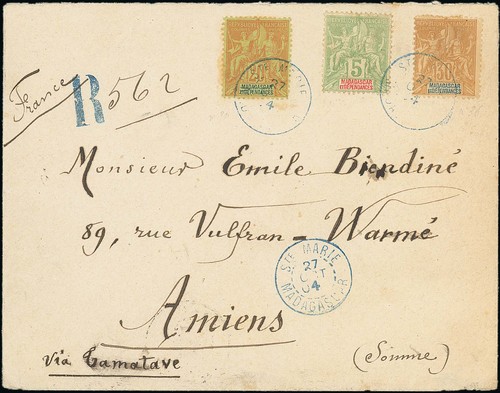 MADAGASCAR
ET DÉPENDANCES
5
MADAGASCAR
ET DÉPENDANCES
MADAGASCAR
ET DÉPENDANCES
STE MARIE
27
4
France
R 562
Monsieur Emile Biendiné
89, rue Vulfran - Warmé
STE MARIE
27
OCT
04
MADAGASCAR
Amiens
(Somme)
Via Tamatave